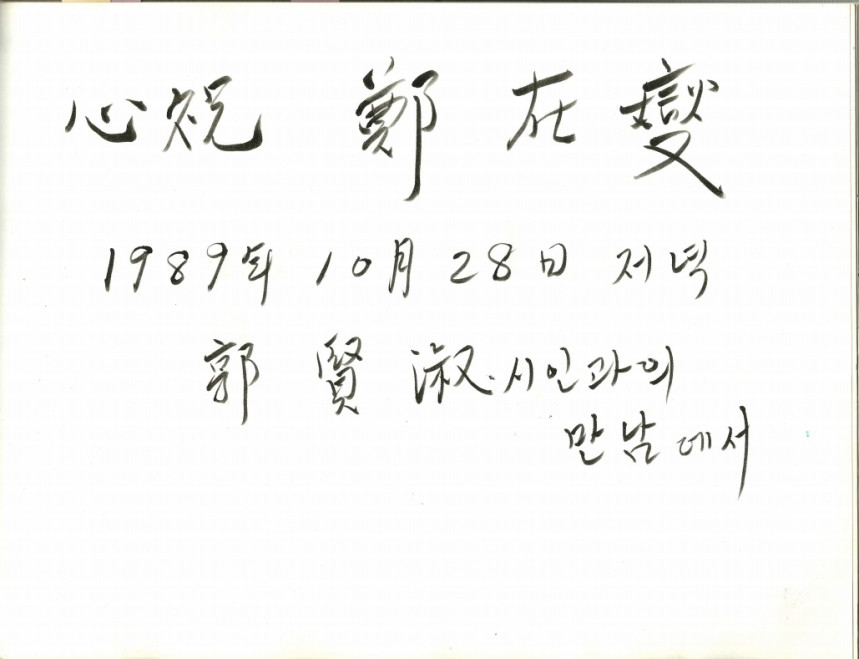 心祝 鄭 在燮
1989年 10月 28日 저녁
郭 賢 淑. 시인과의
만남에서